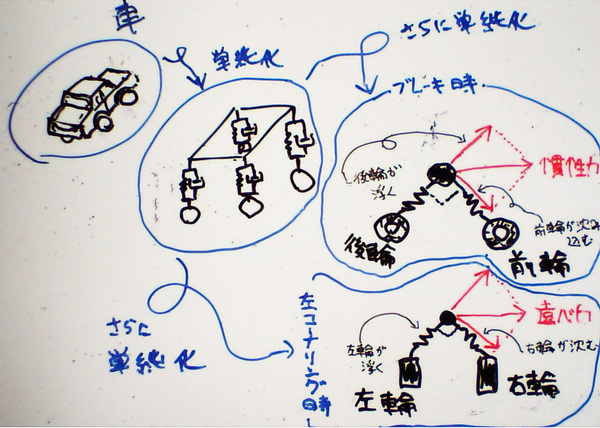 車
単純化
さらに単純化
ブレーキ時
後輪が
浮く
慣性力
前輪が沈み
込む
後輪
前輪
さらに
単純化
左コーナリング時
遠心力
左輪が
浮く
右輪が沈む
左輪
右輪